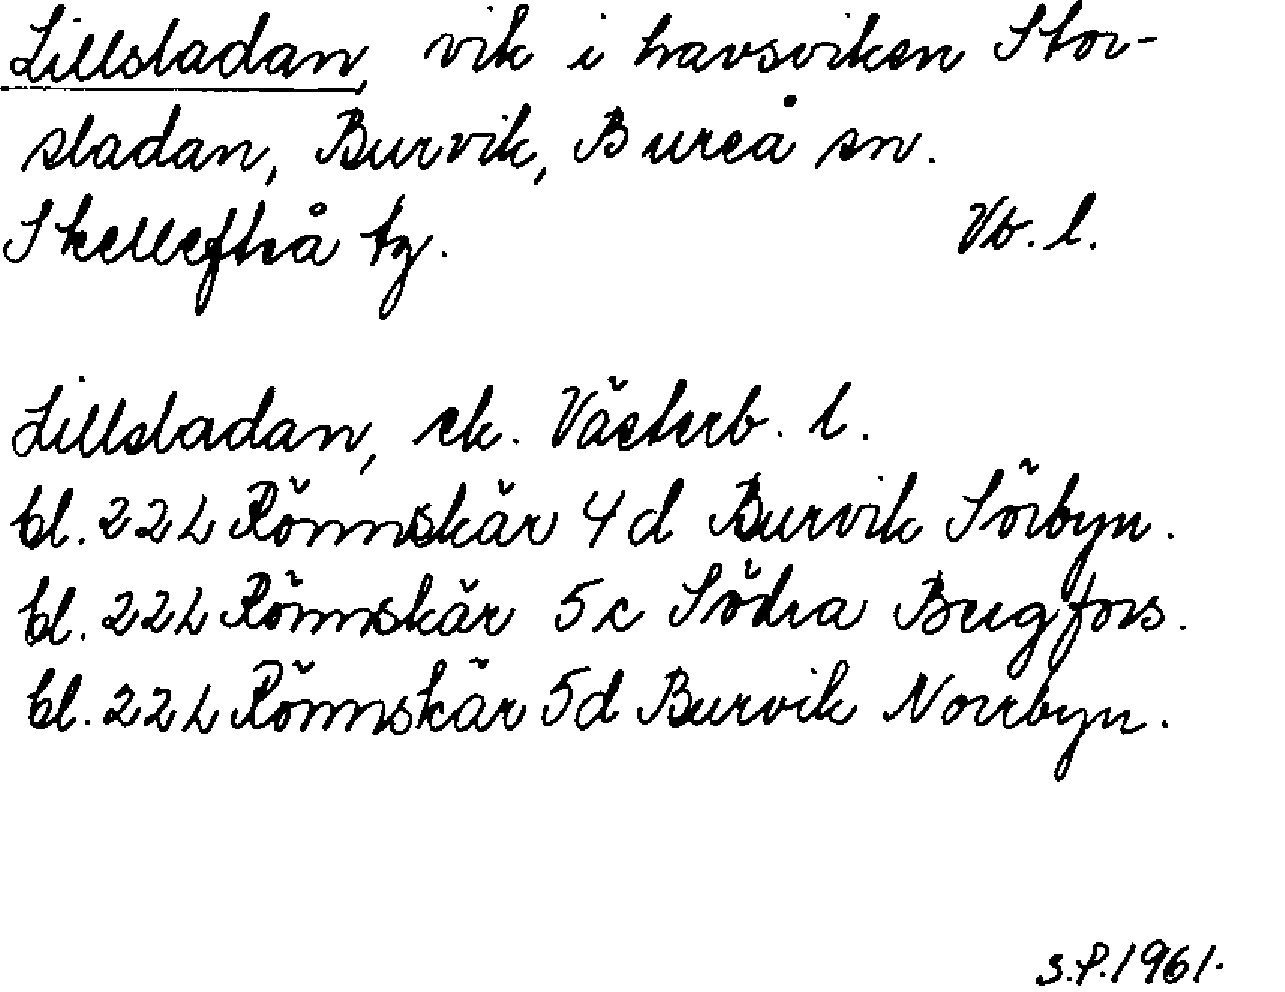 Lillsladan, vik i havsviken Stor-
sladan, Burvik, Bureå sn.
Skellefteå tg. Vb. l.
Lillsladan, ek. Västerb. l.
bl. 22L Rönnskär 4d Burvik Sörbyn.
bl. 22L Rönnskär 5c Södra Bergfors.
bl. 22L Rönnskär 5d Burvik Norrbyn.
S.P. 1961.